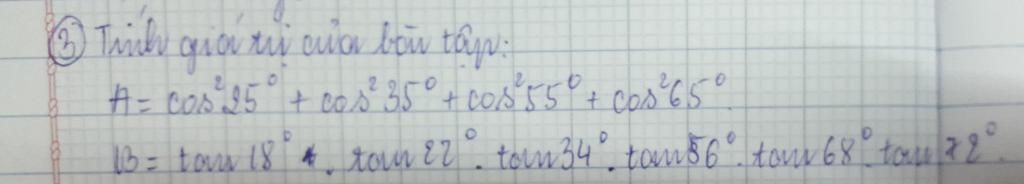 ③ Tính giá trị của bài tập:
A = cos²25° + cos²35° + cos²55° + cos²65°.
B = tan 18° . tan 22° . tan 34° . tan 56° . tan 68° . tan 72°.